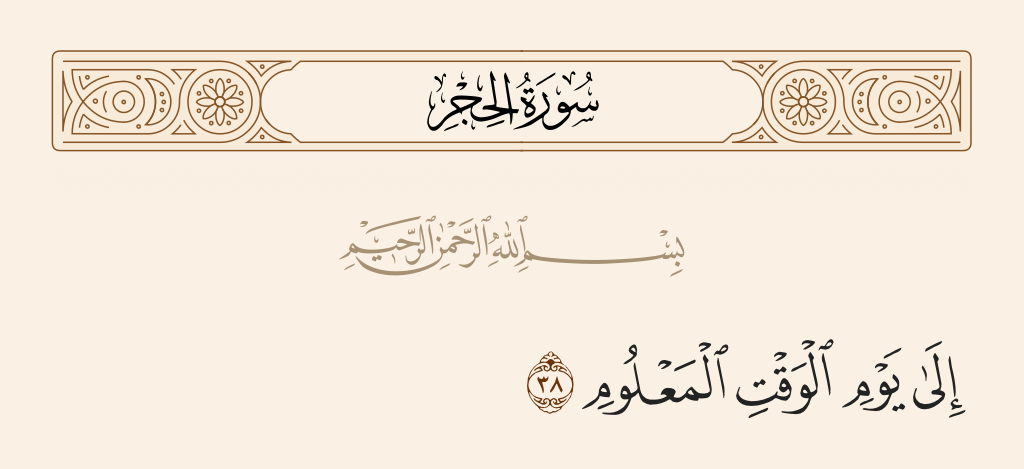 سُورَةُ الحِجْرِ
بِسْمِ ٱللَّهِ ٱلرَّحْمَٰنِ ٱلرَّحِيمِ
إِلَىٰ يَوْمِ ٱلْوَقْتِ ٱلْمَعْلُومِ ٣٨